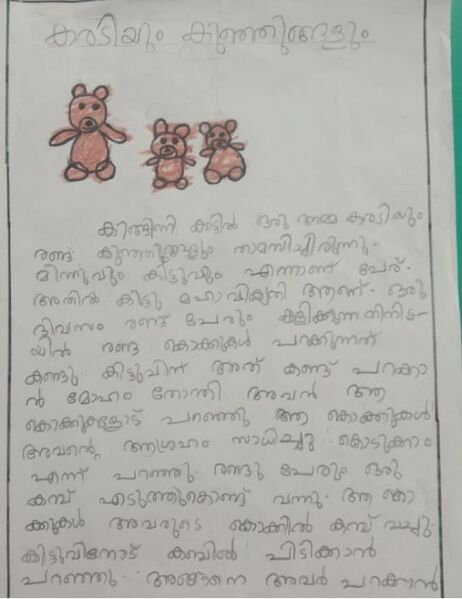 കരടിയും കുഞ്ഞുങ്ങളും
കിങ്ങിണി കാട്ടിൽ ഒരു അമ്മ കരടിയും
രണ്ട് കുഞ്ഞുങ്ങളും താമസിച്ചിരുന്നു.
മിന്നുവും കിട്ടുവും എന്നാണ് പേര്.
അതിൽ കിട്ടു മഹാവികൃതി ആണ്. ഒരു
ദിവസം രണ്ട് പേരും കളിക്കുന്നതിനിട-
യിൽ രണ്ടു കൊക്കുകൾ പറക്കുന്നത്
കണ്ടു. കിട്ടുവിന് അത് കണ്ട് പറക്കാ
ൻ മോഹം തോന്നി. അവൻ ആ
കൊക്കുകളോട് പറഞ്ഞു. ആ കൊക്കുകൾ
അവന്റെ ആഗ്രഹം സാധിച്ചു കൊടുക്കാം
എന്ന് പറഞ്ഞു. രണ്ടു പേരും ഒരു
കമ്പ് എടുത്തുകൊണ്ട് വന്നു. ആ കൊ
ക്കുകൾ അവരുടെ കൊക്കിൽ കമ്പ് വച്ചു.
കിട്ടുവിനോട് കമ്പിൽ പിടിക്കാൻ
പറഞ്ഞു. അങ്ങനെ അവർ പറക്കാൻ